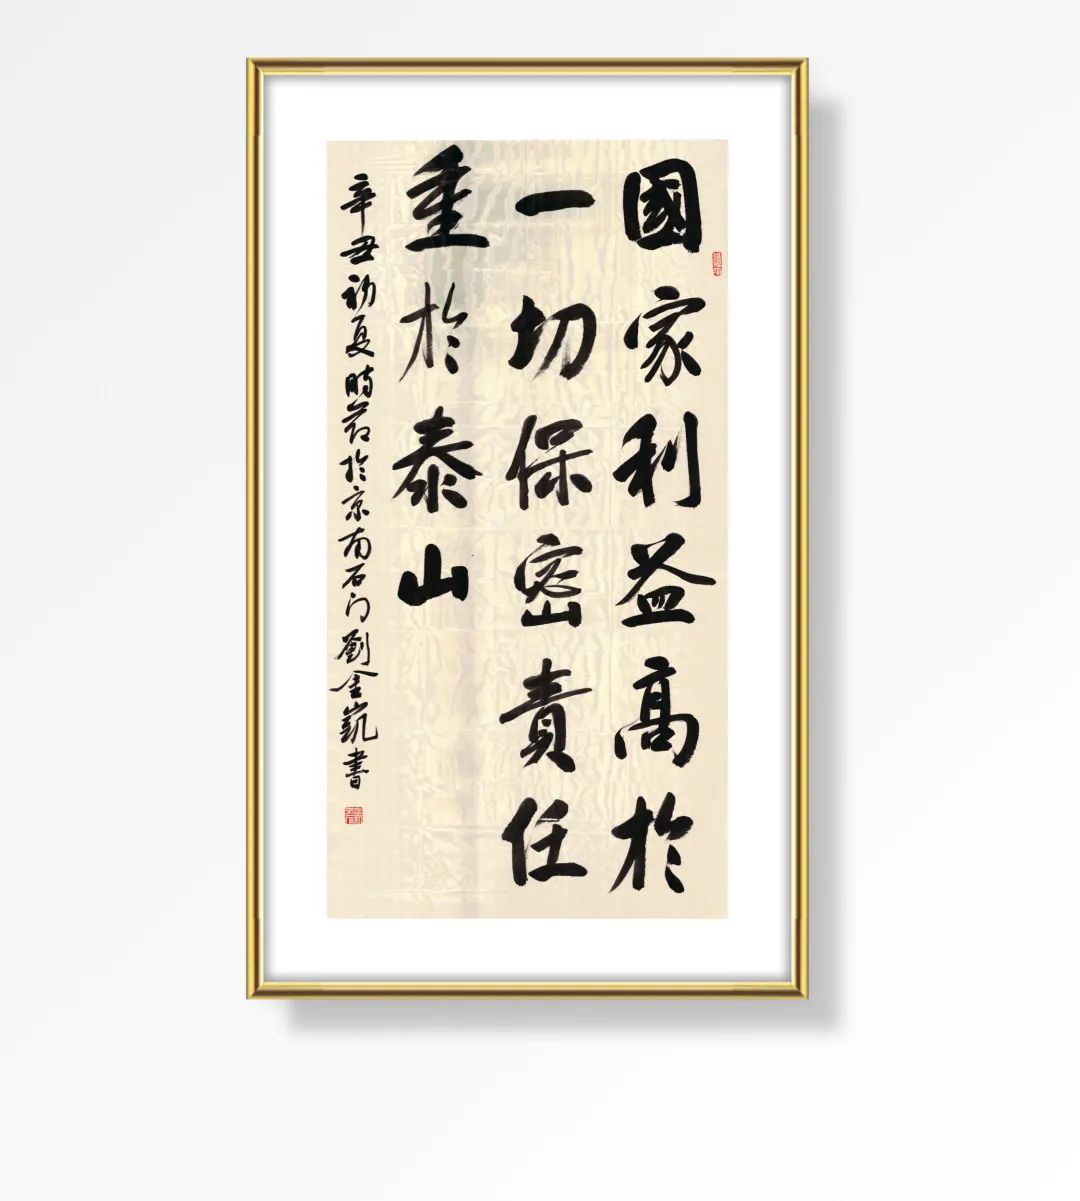 國家利益高於
一切保密責任
重於泰山
辛丑初夏時节於京南石门劉金凱書